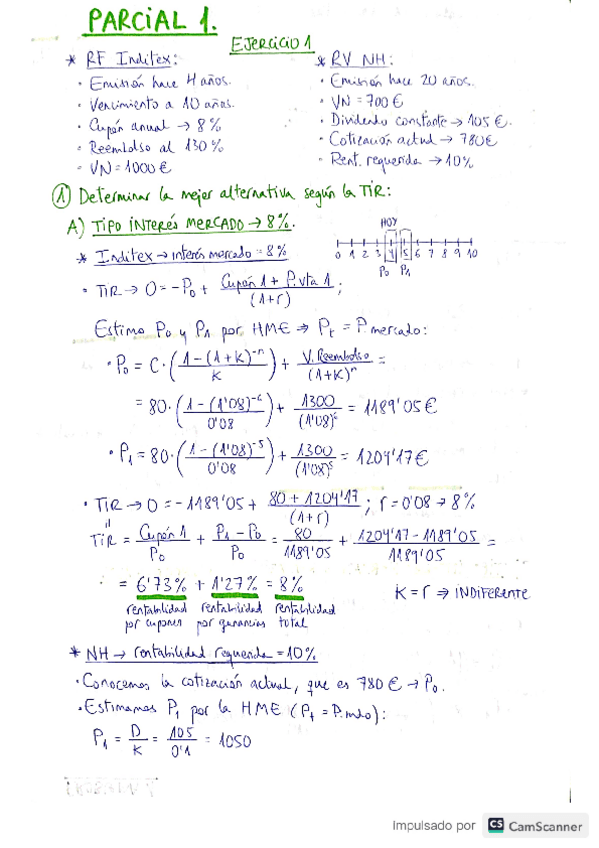 PARCIAL 1.
EJERCICIO 1
* RF Inditex:
· Emisión hace 4 años.
· Vencimiento a 10 años.
· Cupón anual → 8%
· Reembolso al 130%
· VN = 1000€
* RV NH:
· Emisión hace 20 años.
· VN = 700€
· Dividendo constante → 105€.
· Cotización actual → 780€
· Rent. requerida → 10%
① Determinar la mejor alternativa según la TIR:
A) TIPO INTERÉS MERCADO → 8%.
* Inditex → interés mercado = 8%
HOY
0 1 2 3 4 5 6 7 8 9 10
P0 P1
· TIR → 0 = -P0 + (Cupón 1 + P.vta 1)/(1+r);
Estimo P0 y P1 por HME ⇒ Pt = P.mercado:
· P0 = C·((1-(1+K)^-n)/K) + V.Reembolso/(1+K)^n =
= 80·((1-(1'08)^-6)/0'08) + 1300/(1'08)^6 = 1189'05€
· P1 = 80·((1-(1'08)^-5)/0'08) + 1300/(1'08)^5 = 1204'17€
· TIR → 0 = -1189'05 + (80 + 1204'17)/(1+r); r = 0'08 → 8%
TIR = Cupón 1/P0 + (P1 - P0)/P0 = 80/1189'05 + (1204'17 - 1189'05)/1189'05 =
= 6'73% + 1'27% = 8%
K = r ⇒ INDIFERENTE
rentabilidad por cupones
rentabilidad por ganancias
rentabilidad total
* NH → rentabilidad requerida = 10%
· Conocemos la cotización actual, que es 780€ → P0.
· Estimamos P1 por la HME (Pt = P.mdo):
P1 = D/K = 105/0'1 = 1050
Impulsado por CS CamScanner